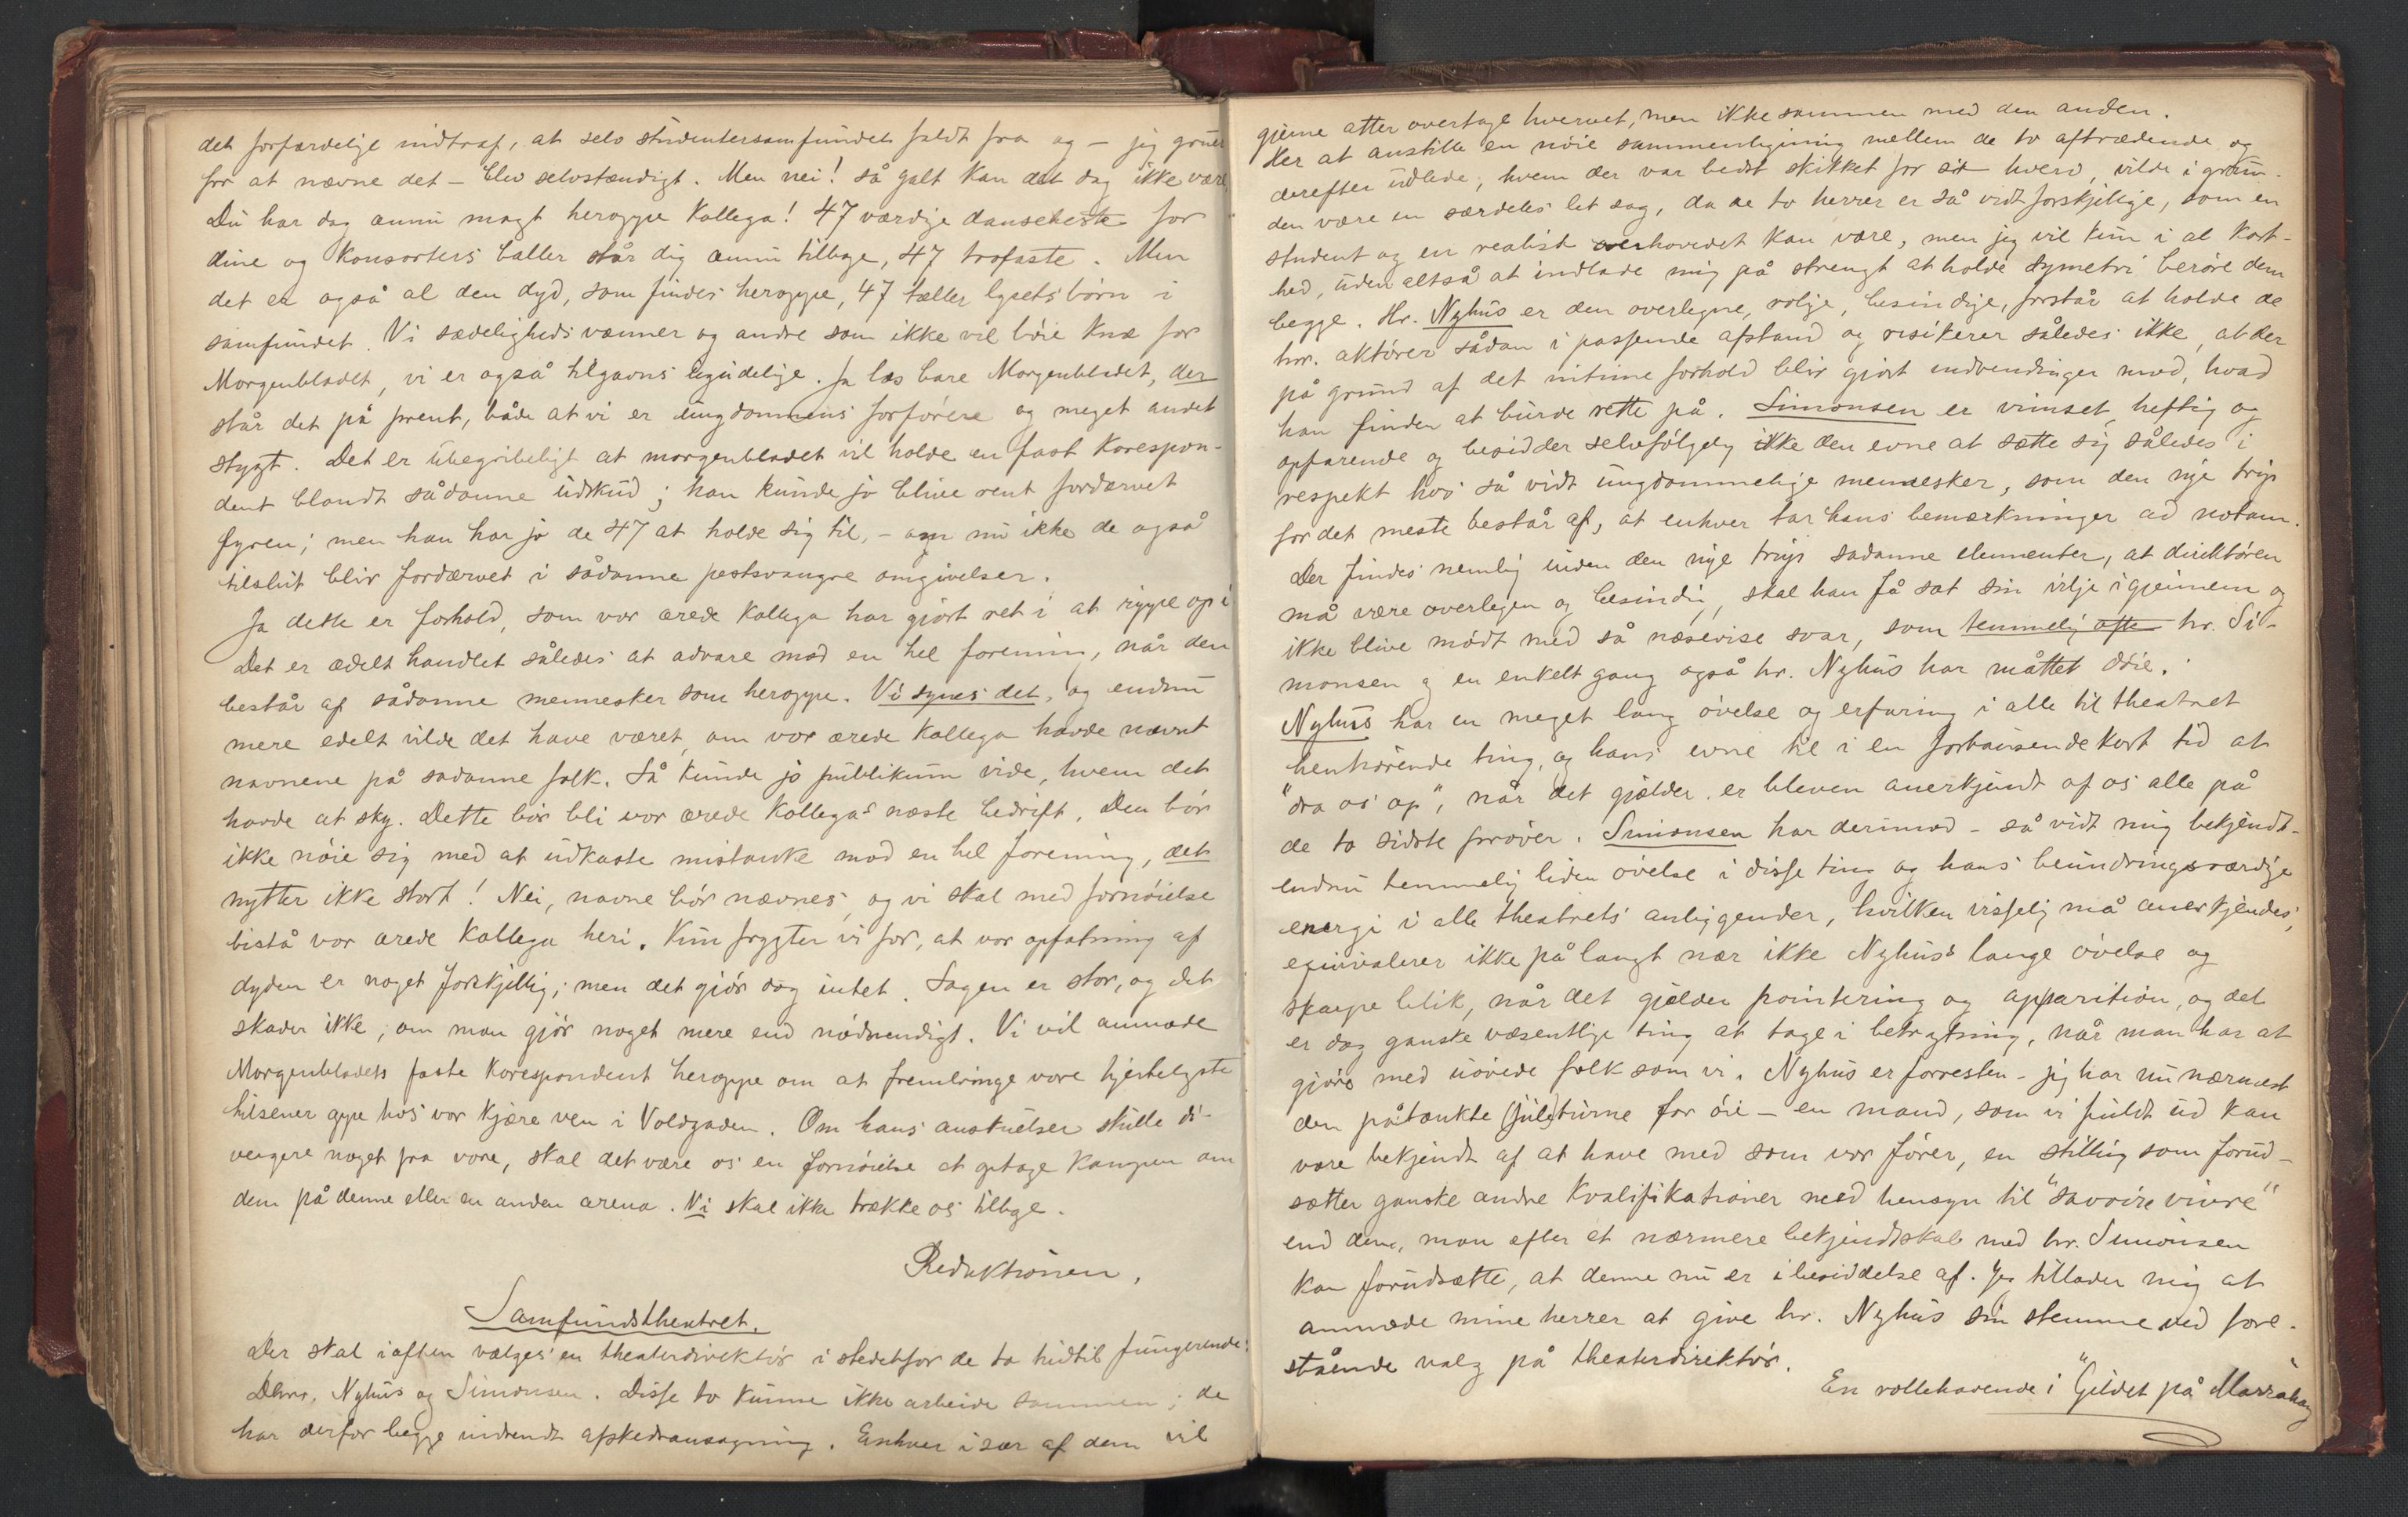 det forfærdelige indtraf, at selv studentersamfundet faldt fra og – jeg gruer
for at nævne det – blev selvstændigt. Men nei! så galt kan det dog ikke være
Du har dog ennu magt heroppe Kollega! 47 værdige danseheste for
dine og Konsorters baller står dig ennu tilbage, 47 trofaste. Men
det er også al den dyd, som findes heroppe, 47 tæller lysets børn i
samfundet. Vi sædelighedsvænner og andre som ikke vil bøie knæ for
Morgenbladet, vi er også tilgavns ugudelige. Ja læs bare Morgenbladet, der
står det på prent, både at vi er ungdommens forførere og meget andet
stygt. Det er ubegribeligt at morgenbladet vil holde en fast Korespon-
dent blandt sådanne udskud; han kunde jo blive rent fordærvet
fyren; men han har jo de 47 at holde sig til, – om nu ikke de også
tilslut blir fordærvet i sådanne pestsvangre omgivelser.
Ja dette er forhold, som vor ærede Kollega har gjort ret i at rippe op i
Det er ædelt handlet således at advare mod en hel forening, når den
består af sådanne mennesker som heroppe. Vi synes det, og endnu
mere edelt vilde det have været, om vor ærede Kollega havde nævnt
navnene på sadanne folk. Så kunde jo publikum vide, hvem det
havde at sky. Dette bør bli vor ærede Kollegas næste bedrift. Den bør
ikke nøie sig med at udkaste mistanke mod en hel forening, det
nytter ikke stort! Nei, navne bør nævnes, og vi skal med fornøielse
bistå vor ærede Kollega heri. Kun frygter vi for, at vor opfatning af
dyden er noget forskjellig; men det gjør dog intet. Sagen er stor, og det
skader ikke, om man gjør noget mere end nødvendigt. Vi vil anmode
Morgenbladets faste Korespondent heroppe om at frembringe vore hjerteligste
hilsener oppe hos vor kjære ven i Voldgaden. Om hans anskuelser skulle di-
vergere noget fra vore, skal det være os en fornøielse at optage kampen om
dem på denne eller en anden arena. Vi skal ikke trække os tilbage.
Redaktionen.
Samfundstheatret.
Der skal iaften vælges en theaterdirektør i stedetfor de to hidtil fungerende:
Dhrr. Nyhus og Simonsen. Disse to kunne ikke arbeide sammen; de
har derfor begge indsendt afskedsansøgning. Enhver især af dem vil
gjerne atter overtage hvervet, men ikke sammen med den anden.
Her at anstille en nøie sammenligning mellem de to aftrædende og
derefter udlede, hvem der var bedst skikket for sit hverv, vilde i grun-
den være en særdeles let sag, da de to herrer er så vidt forskjellige, som en
student og en realist overhovedet kan være, men jeg vil kun i al Kort-
hed, uden altså at indlade mig på strengt at holde symetri berøre dem
begge. Hr. Nyhus er den overlegne, rolige, besindige, forstår at holde de
hrr. aktører sådan i passende afstand og risikerer således ikke, at der
på grund af det intime forhold blir gjort indvendinger mod, hvad
han finder at burde rette på. Simonsen er vimset, heftig og
opfarende og besidder selvfølgelig ikke den evne at sætte sig således i
respekt hos så vidt ungdommelige mennesker, som den nye trup
for det meste består af, at enhver tar hans bemærkninger ad notam.
Der findes nemlig inden den nye trup sadanne elementer, at direktøren
må være overlegen og besindig, skal han få sat sin vilje igjennem og
ikke blive mødt med så næsevise svar, som temmelig ofte hr. Si-
monsen og en enkelt gang også hr. Nyhus har måttet døie.
Nyhus har en meget lang øvelse og erfaring i alle til theatret
henhørende ting, og hans evne til i en forbausende kort tid at
"dra os op", når det gjælder er bleven anerkjendt af os alle på
de to sidste prøver. Simonsen har derimod – så vidt mig bekjendt –
endnu temmelig liden øvelse i disse ting og hans beundringsværdige
energi i alle theatrets anliggender, hvilken visselig må anerkjendes,
eqvivalerer ikke på langt nær ikke Nyhus's lange øvelse og
skarpe blik, når det gjelder pointering og apparition, og det
er dog ganske væsentlige ting at tage i betragtning, når man har at
gjøre med uøvede folk som vi. Nyhus er forresten – jeg har nu nærmest
den påtænkte (jule)turne for øie – en mand, som vi fuldt ud kan
være bekjendt af at have med som vor fører, en stilling som forud-
sætter ganske andre Kvalifikationer med hensyn til "savoire vivre"
end dem, man efter et nærmere bekjendtskab med hr. Simonsen
kan forudsætte, at denne nu er i besiddelse af. Jeg tillader mig at
anmode mine herrer at give hr. Nyhus sin stemme ved fore-
stående valg på theaterdirektør.
En rollehavende i "Gildet på